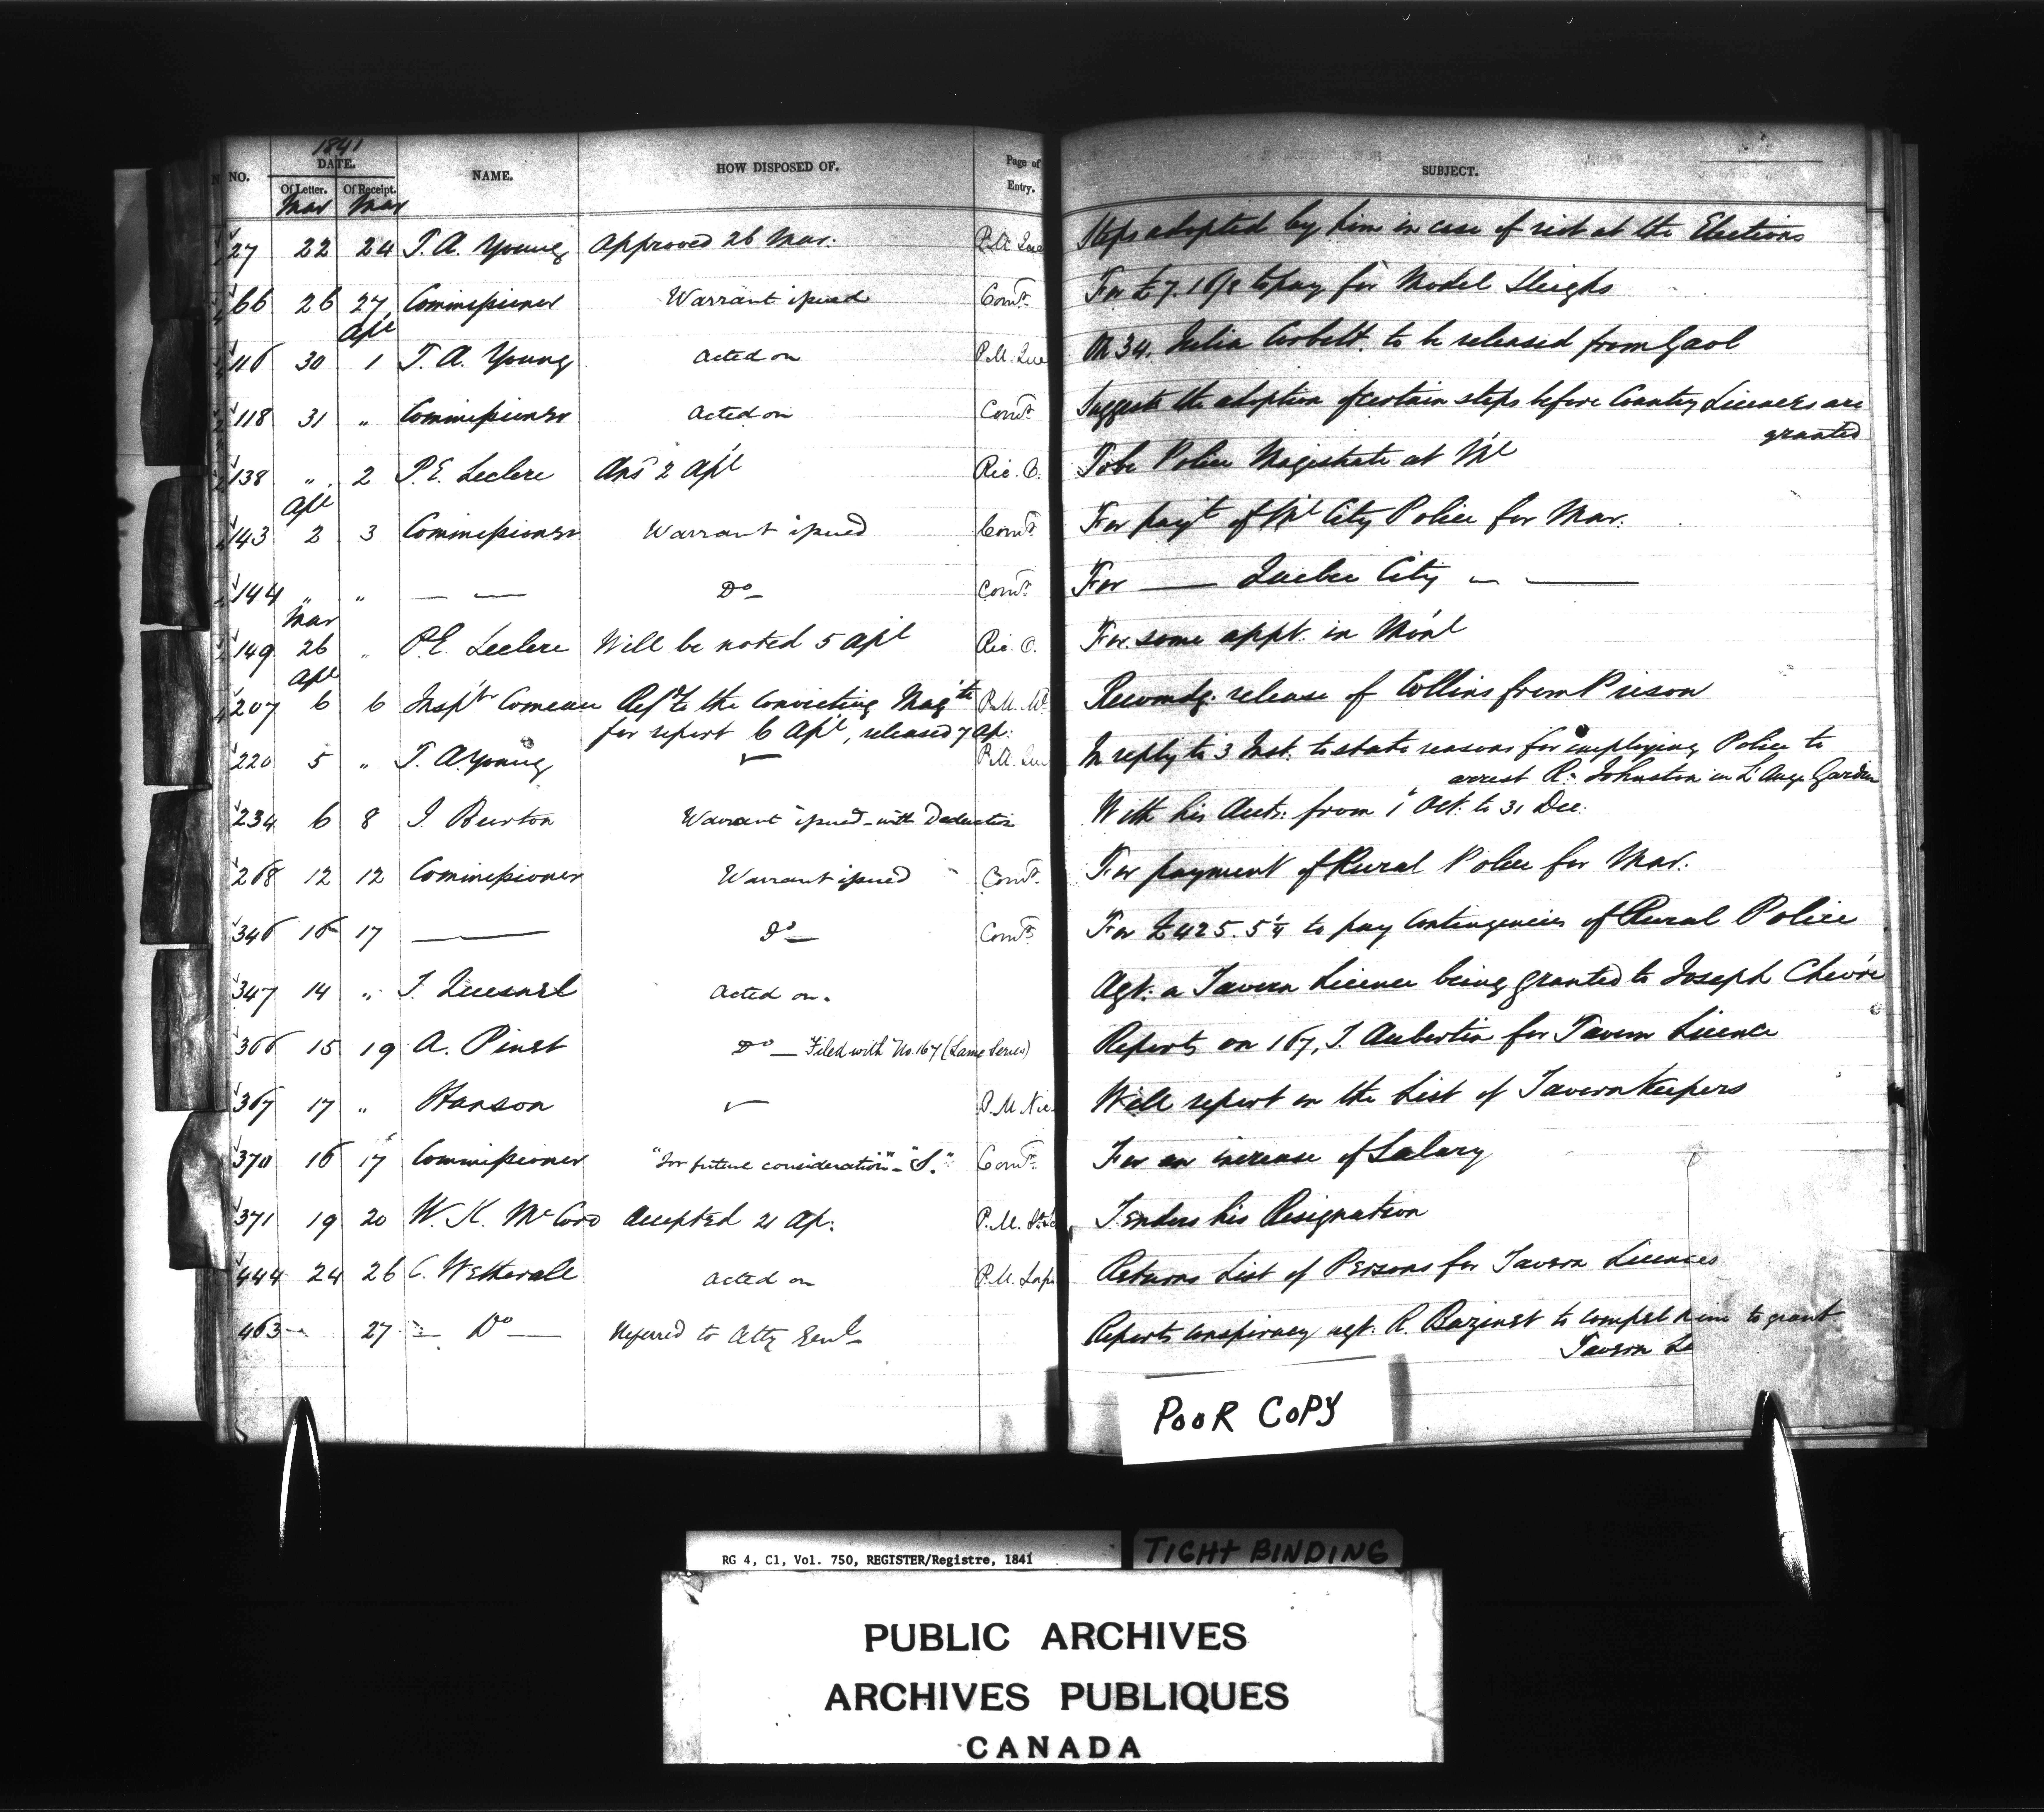 1841
NO. DATE. NAME. HOW DISPOSED OF. Page of Entry. SUBJECT.
Of Letter. Of Receipt.
Mar Mar
27 22 24 T. A. Young Approved 26 Mar. P.M. Que Steps adopted by him in case of riot at the Elections
66 26 27 Commissioner Warrant issued Comr. For £7. 16/8 to pay for Model Sleighs
Apl
116 30 1 T. A. Young Acted on P.M. Que On 34. Julia Corbett. to be released from Gaol
118 31 " Commissioner Acted on Comr. Suggests the adoption of certain steps before Country Licences are
granted
138 " 2 P. E. Leclere Ans 2 Apl Ric. O. To be Police Magistrate at Ml
Apl
143 2 3 Commissioner Warrant issued Comr. For payt of Ml City Police for Mar.
144 " " — — Do — Comr. For — Quebec City — —
Mar
149 26 " P. E. Leclere Will be noted 5 Apl Ric. O. For some appt. in Monl
Apl
207 6 6 Inspr Comeau Refd to the Convicting Magte P.M. Ml Recomdg. release of Collins from Prison
for report 6 Apl, released 7 Ap:
220 5 " T. A. Young P.M. Que In reply to 3 Inst. to state reasons for employing Police to
arrest R. Johnston in L'Ange Gardien
234 6 8 J. Burton Warrant issued – with Deduction With his Accts: from 1 Oct. to 31 Dec.
268 12 12 Commissioner Warrant issued Comr. For payment of Rural Police for Mar.
346 16 17 — Do — Comr. For £425. 5¼ to pay Contingencies of Rural Police
347 14 " T. Quesnel Acted on. Agt. a Tavern Licence being granted to Joseph
366 15 19 A. Pinet Do — Filed with No. 167 (Same Series) Reports on 167, J. Aubertin for Tavern Licence
367 17 " Hanson P.M. Nic Will report on the List of Tavern Keepers
370 16 17 Commissioner "For future consideration" – "S." Comr. For an increase of Salary
371 19 20 W. K. McCord Accepted 21 Ap. P.M. Tenders his Resignation
444 24 26 C. Wetherall Acted on P.M. Lap Returns List of Persons for Tavern Licences
463 27 — Do — Referred to Atty Genl Reports conspiracy agt. R. Bazinet to compel him to grant
Tavern Li
POOR COPY
RG 4, C1, Vol. 750, REGISTER/Registre, 1841
TIGHT BINDING
PUBLIC ARCHIVES
ARCHIVES PUBLIQUES
CANADA